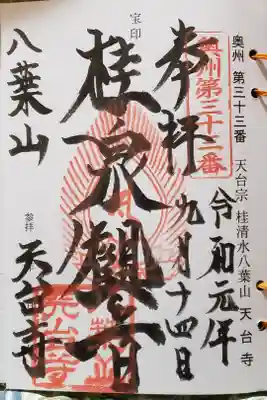 奥州 第三十三番 天台宗 桂清水八葉山 天台寺
奥州第三十三番
奉拝
令和元年九月十四日
宝印
桂泉観世音
八葉山
参拝
天台寺